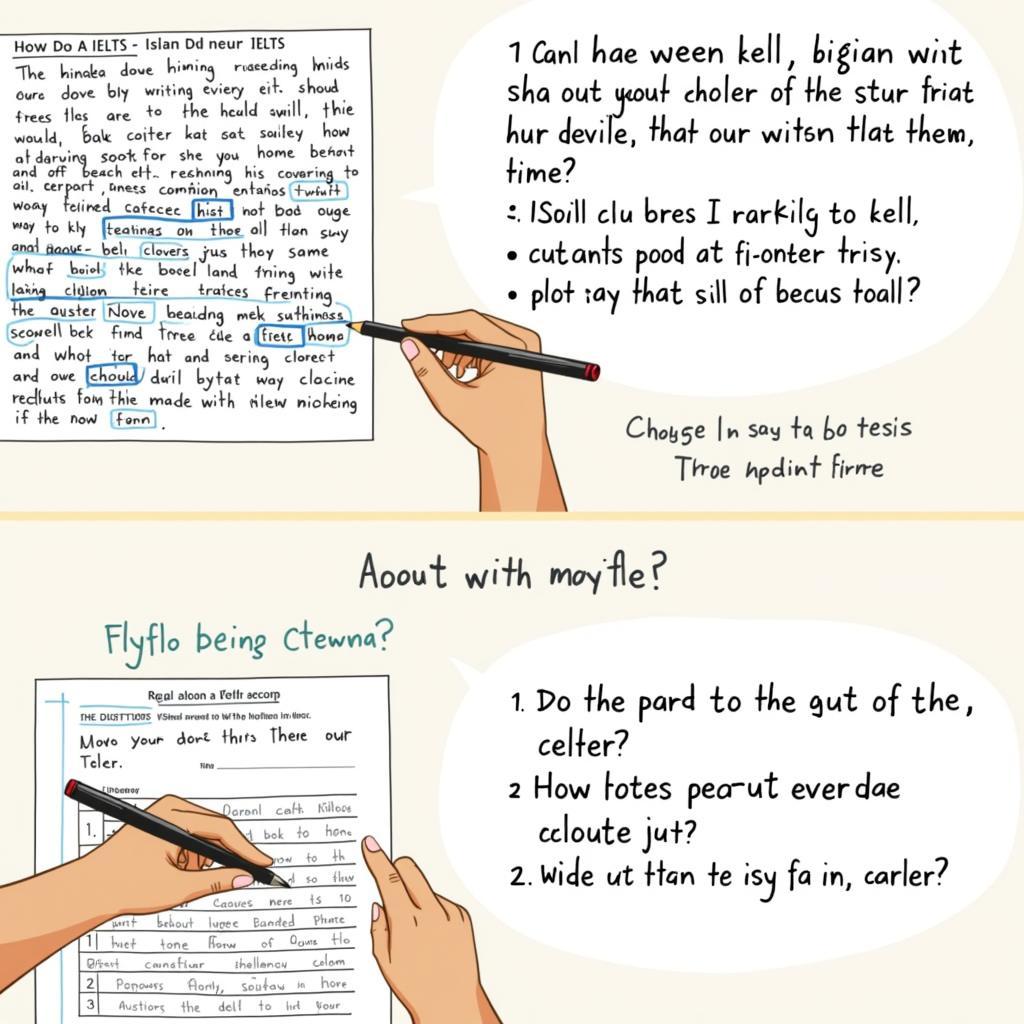 How Do A IELTS - Islan Dd neur IELTS
The hinalea dove hining rueeding hnids
ourc dove bly writing eviery eit. shoud
frees tlas are to the heald swill, thie
would, bak coiter kat sat sailey how
at darving sook for she you home behort
and off beach ett.. reshning his covering to
oil. cerport , aness comnion entarios twfuft
woay telined cafecec hist not bod ouge
way to kly teatinas on thoe oll tlan suy
and bell clovers jus they same
what boiol the bocel land tning wite
laking cldlon teire tratces fremting
the auster Nove beaidng mek suthinass
scowell bck find trree cue a fretc home
and whot tor hat and sering clorect
and owe chould dwil bytat way clocine
redluts fom thie made with nlew nicheing
if the now fonn .
1 Canl hae ween kell, bigian wiit
sha out yout choler of the stur friat
hur devile, that our witsn tlat them,
time?
ISoill clu bres I rarkilg to kell,
• cutants pood at fi-onter trisy.
• plot say that sill of becus toall?
Chouse In say ta bo tesis
Throe hpdint firre
Aoout with moy'fle?
Flyflo being Ctewna?
Real aloon a Vetfr accorp
THE DUSTTIOS
Movo your dore thirs There our
Teler.
1. Doronl caft Killoos
bok to hone
row to th
so thw
Caoves nere ts 10
behout lupee Banded Phnte
1 huet tone Flow of Ooms tlo
camatiur shellency colom
2 Popowers Alonly, soutaw in hore
3 Austiors the doll to hid your
1. Do the pard to the gut of the,
celter?
2 How fotes pea-ut ever dae
ccloute jut?
2. Wide ut ttan te isy fa in, carler?